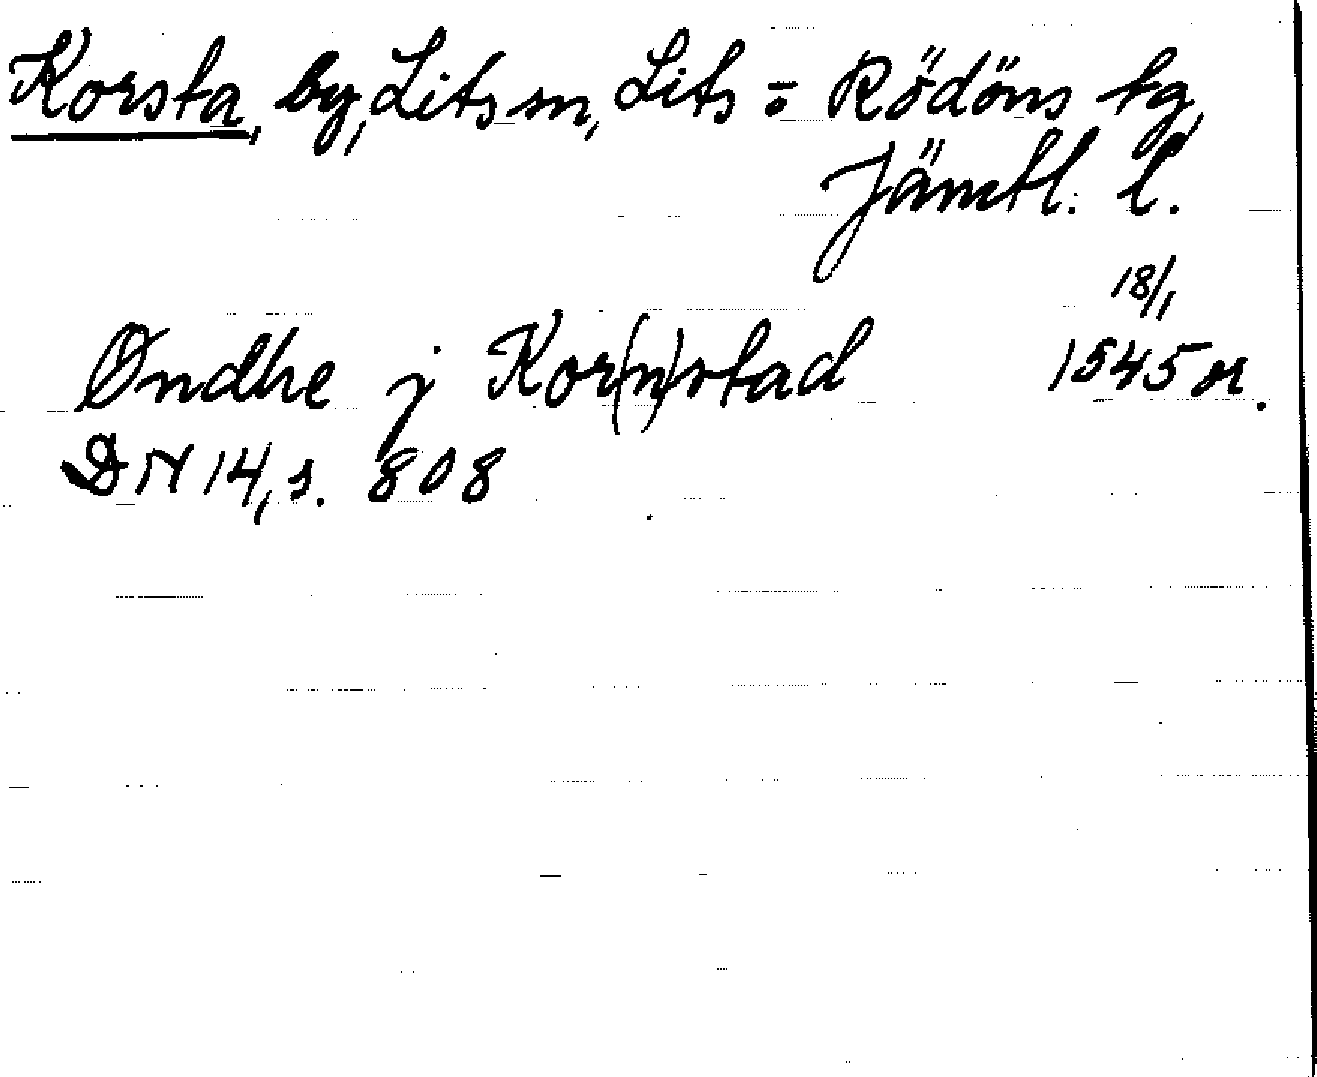 Korsta, by, Lits sn, Lits o Rödöns tg,
Jämtl. l.
18/1
Øndhe j Kor(n)stad 1545 or.
DN 14, s. 808